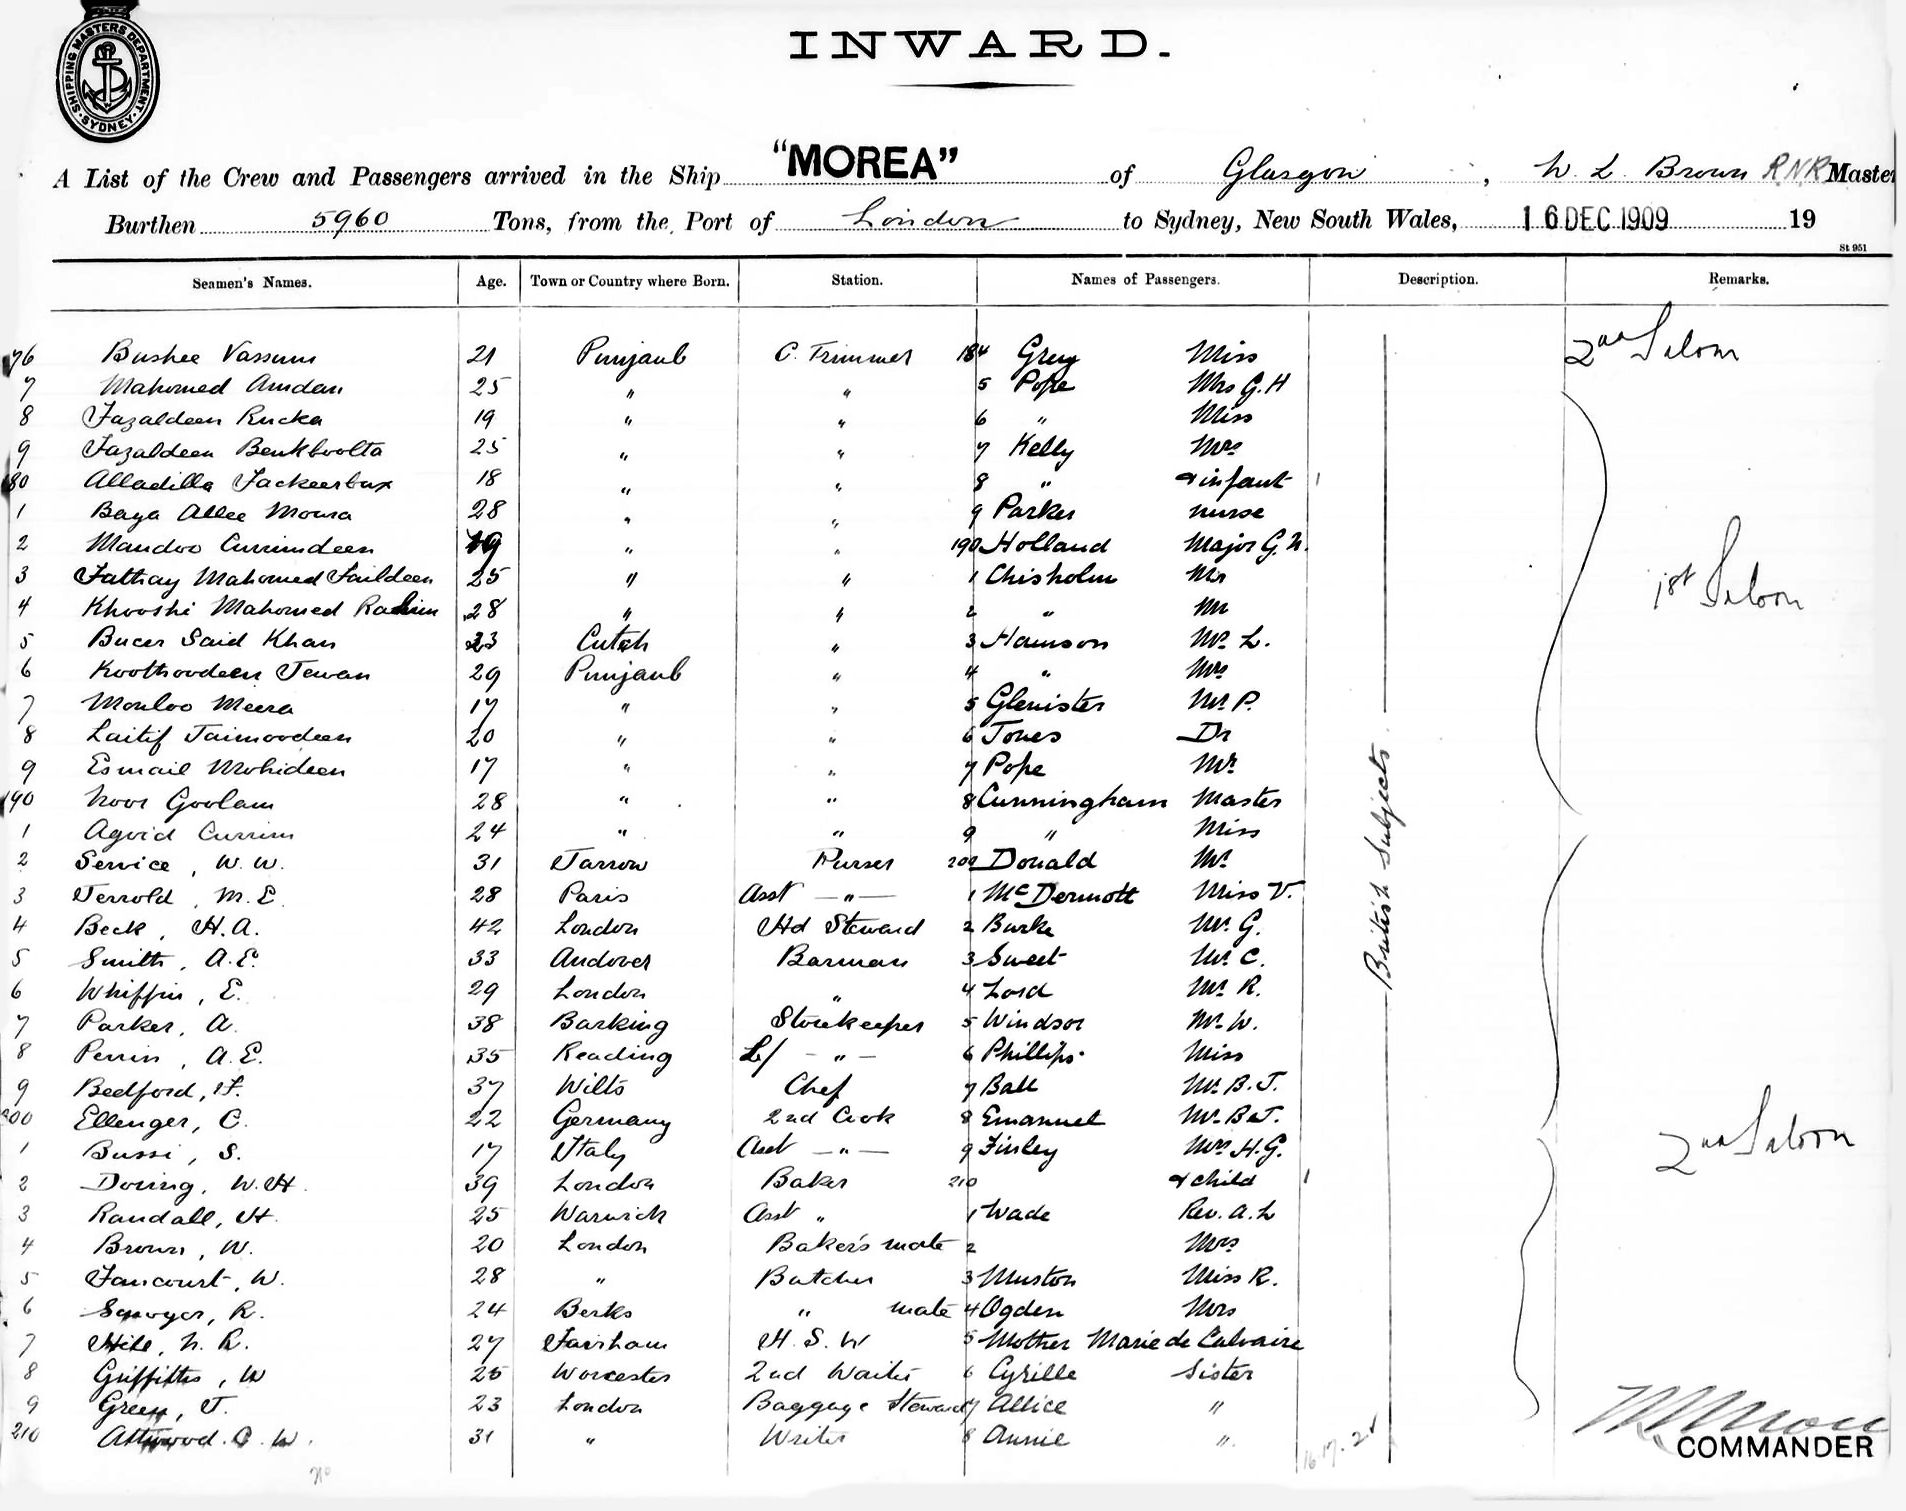 SHIPPING MASTERS DEPARTMENT
SYDNEY
INWARD.
A List of the Crew and Passengers arrived in the Ship "MOREA" of Glasgow, W. L. Brown R.N.R Master
Burthen 5960 Tons, from the Port of London to Sydney, New South Wales, 16 DEC 1909 19
St 951
Seamen's Names. Age. Town or Country where Born. Station. Names of Passengers. Description. Remarks.
76 Bushee Vassum 21 Punjaub C. Trimmer 184 Grey Miss 2nd Saloon
7 Mahomed Amdan 25 " " 5 Pope Mrs G. H
8 Fazaldeen Rucka 19 " " 6 " Miss
9 Fazaldeen Benkboolta 25 " " 7 Kelly Mrs
80 Alladilla Fackeerbux 18 " " 8 " & infant 1
1 Baya Allee Mousa 28 " " 9 Parker nurse
2 Mandoo Currimdeen 19 " " 190 Holland Major G.
3 Fathay Mahomed Faildeen 25 " " 1 Chisholm Mr 1st Saloon
4 Khooshi Mahomed 28 " " 2 "
5 Bucer Said Khan 23 Cutch " 3 Mr L.
6 Koothoodeen Jewan 29 Punjaub " 4 " Mrs
7 Monloo Meera 17 " " 5 Glenister Mr P.
8 Laitif Jaimoodeen 20 " " 6 Jones Dr
9 Esmail Mohideen 17 " " 7 Pope Mr
190 Noor Goolam 28 " " 8 Cunningham Master
1 Agvid Currim 24 " " 9 " Miss
2 Service, W. W. 31 Jarrow Purser 200 Donald Mr
3 Jerrold, M. E. 28 Paris Asst — " — 1 McDermott Miss V.
4 Beck, H. A. 42 London Hd Steward 2 Burke Mr G.
British Subjects
5 Smith, A. E. 33 Andover Barman 3 Sweet Mr C.
6 Whiffin, E. 29 London " 4 Lord Mr R.
7 Parker, A. 38 Barking Storekeeper 5 Windsor Mr W.
8 Perrin, A. E. 35 Reading — " — 6 Phillips Miss
9 Bedford, F. 37 Wilts Chef 7 Ball Mr B. J.
200 Ellenger, C. 22 Germany 2nd Cook 8 Emanuel Mr B. J.
1 Bussi, S. 17 Italy Asst — " — 9 Finley Mrs H. G. 2nd Saloon
2 Doring, W. H. 39 London Baker 210 & child 1
3 Randall, H. 25 Warwick Asst " 1 Wade Rev. A. L
4 Brown, W. 20 London Baker's mate 2 Mrs
5 Fancourt, W. 28 " Butcher 3 Muston Miss R.
6 Sawyer, R. 24 Berks " mate 4 Ogden Mrs
7 Hill, N. R. 27 Fairham H. S. W 5 Mother Marie de Calvaire
8 Griffiths, W 25 Worcester 2nd Waiter 6 Cyrille Sister
9 Green, J. 23 London Baggage Steward 7 Allice "
210 Attwood. C. W. 31 " Writer 8 Annie "
COMMANDER